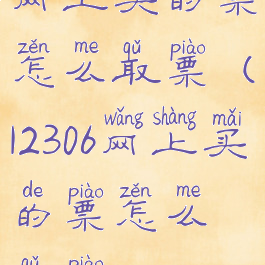 网上买的票
zěn me qǔ piào
怎么取票（
wǎng shàng mǎi
12306网上买
de piào zěn me
的票怎么
qǔ piào